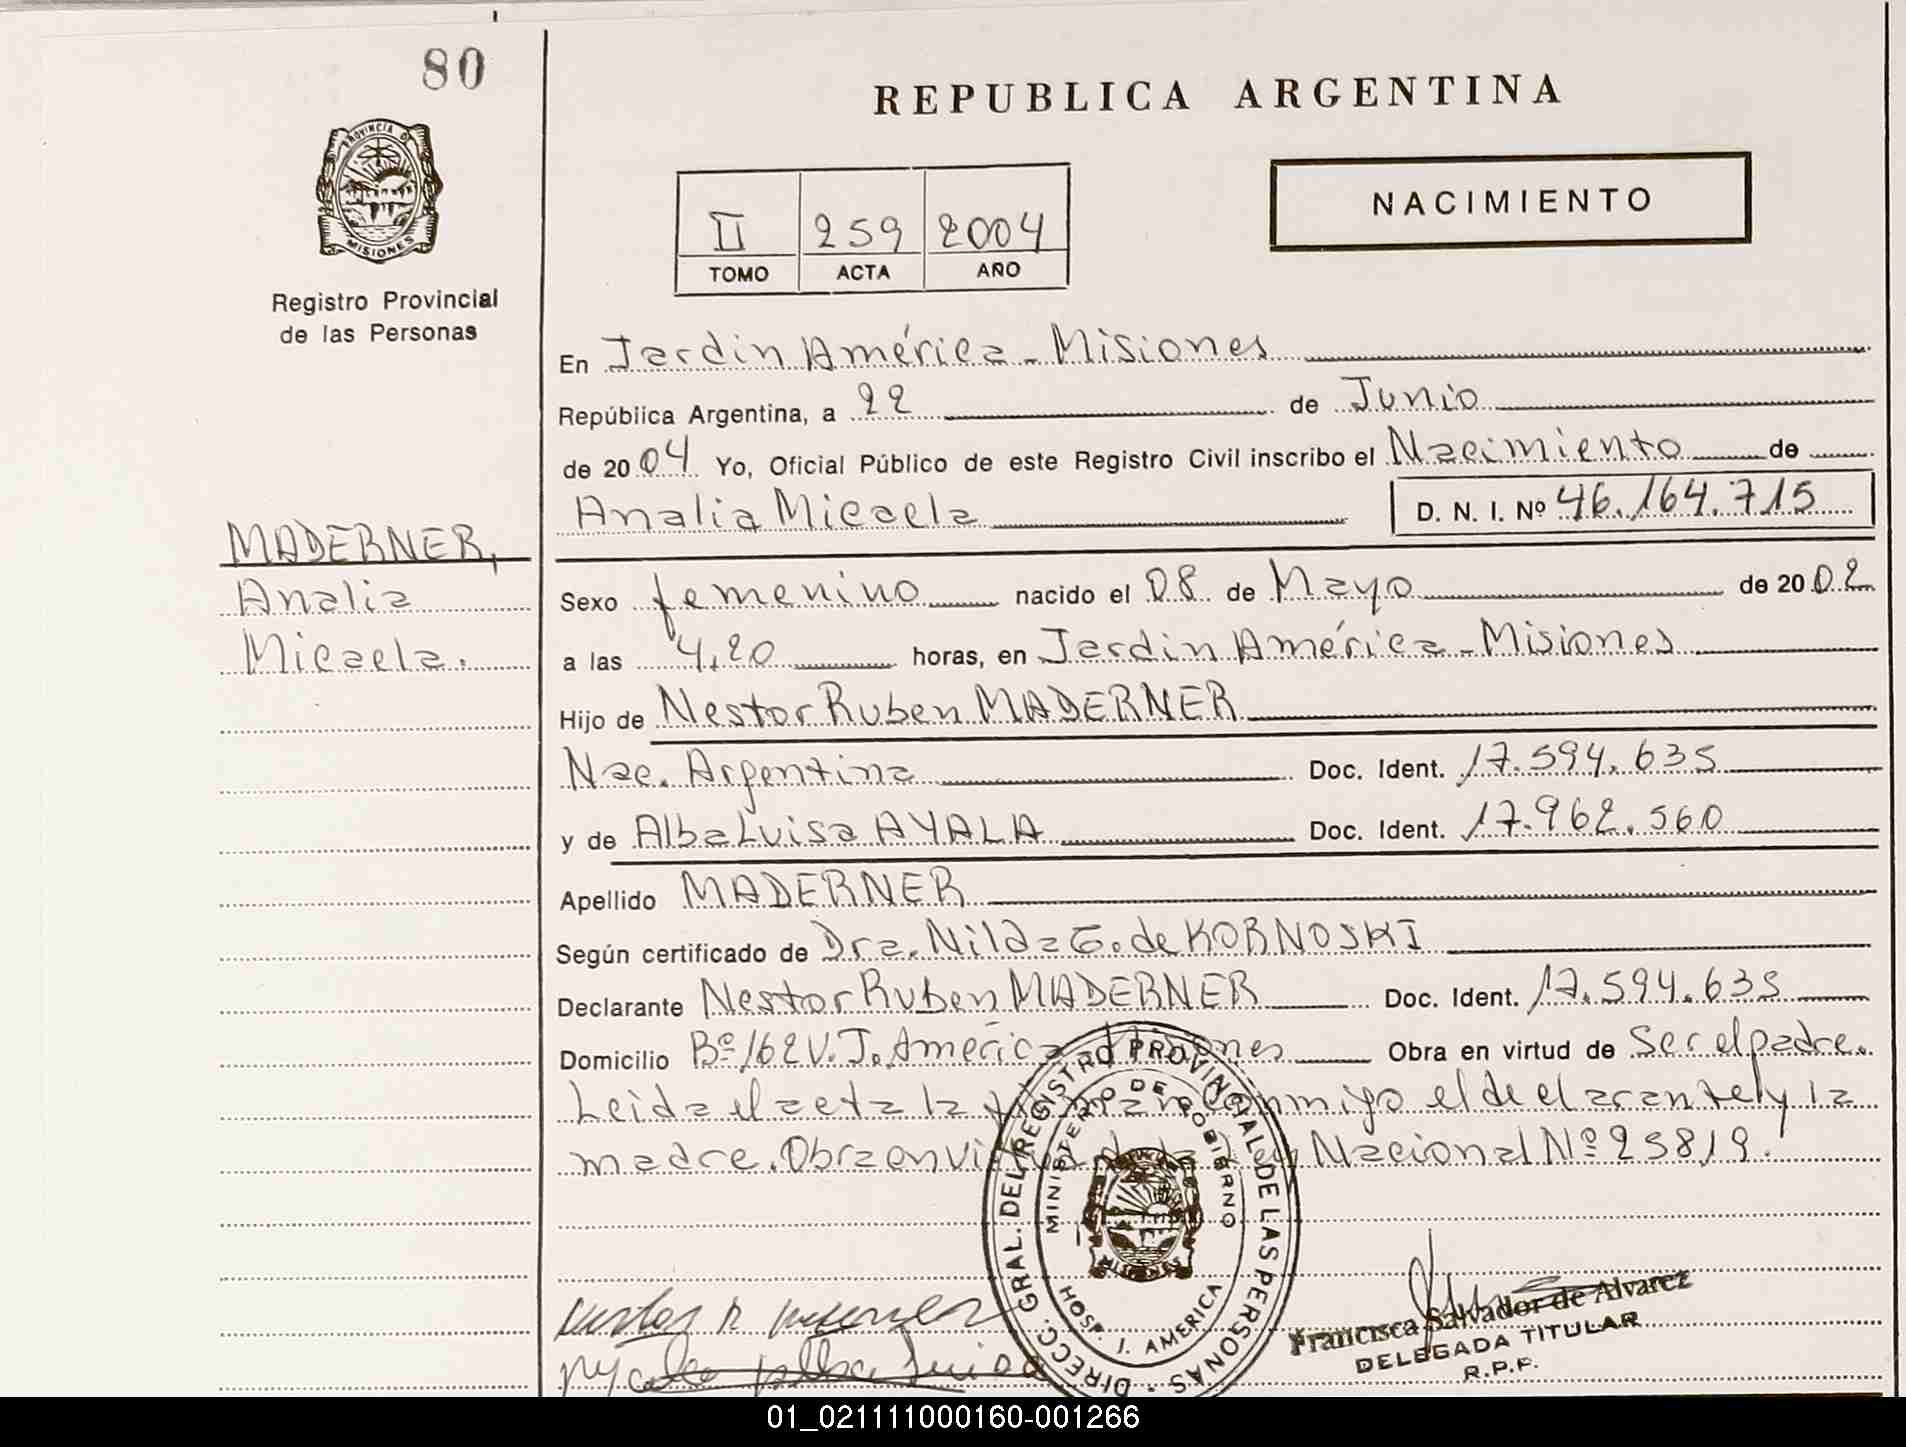 80
REPUBLICA ARGENTINA
PROVINCIA DE
MISIONES
Registro Provincial
de las Personas
II 259 2004
TOMO ACTA AÑO
NACIMIENTO
En Jardin América - Misiones
República Argentina, a 22 de Junio
de 20 04 Yo, Oficial Público de este Registro Civil inscribo el Nacimiento de
Analia Micaela D. N. I. Nº 46.164.715
MADERNER,
Analia
Micaela.
Sexo femenino nacido el 08 de Mayo de 20 02
a las 4,20 horas, en Jardin América - Misiones
Hijo de Nestor Ruben MADERNER
Nac. Argentina Doc. Ident. 17.594.635
y de Alba Luisa AYALA Doc. Ident. 17.962.560
Apellido MADERNER
Según certificado de Dra. Nilda G. de KORNOSKI
Declarante Nestor Ruben MADERNER Doc. Ident. 17.594.635
Domicilio Bº 162 V. J. América Misiones Obra en virtud de Ser el padre.
Leida el acta la firman conmigo el declarante y la
madre. Obra en virtud de la Ley Nacional Nº 25819.
DIRECC. GRAL. DEL REGISTRO PROVINCIAL DE LAS PERSONAS
MINISTERIO DE GOBIERNO
MISIONES
HOSP. J. AMERICA
Francisca Salvador de Alvarez
DELEGADA TITULAR
R.P.P.
01_021111000160-001266